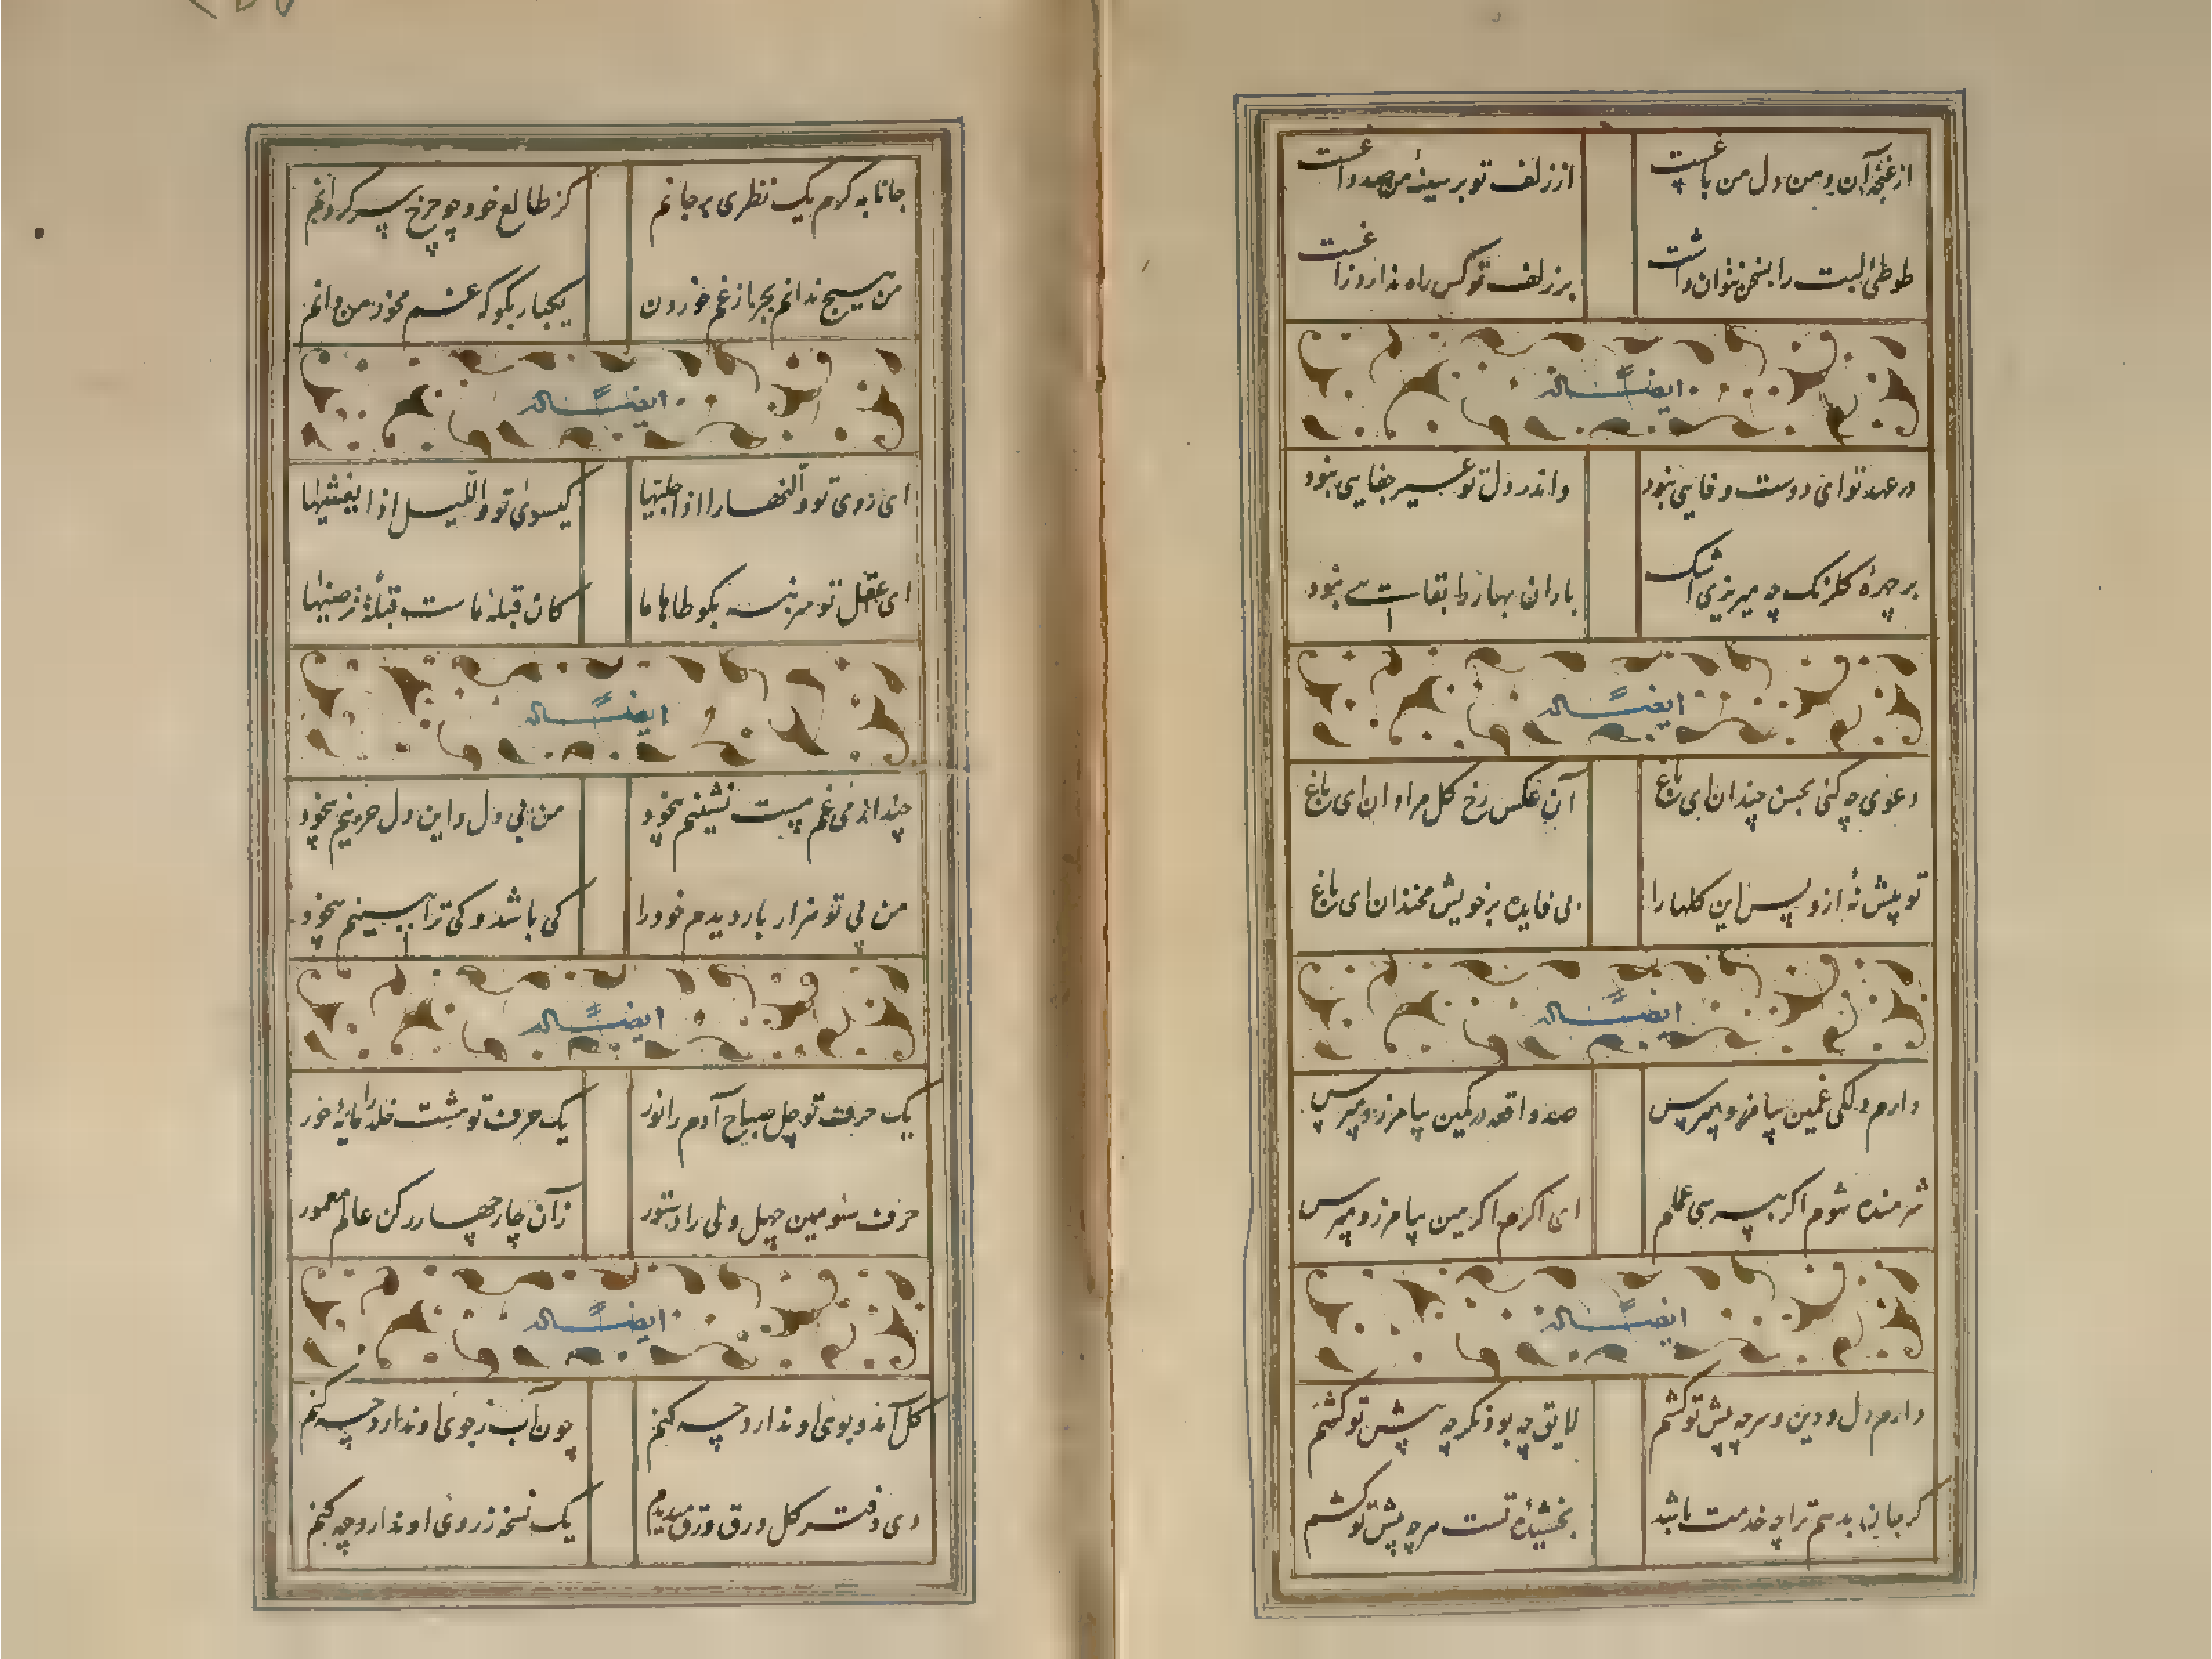 از غنچهٔ آن دهن دل من باغست از زلف تو بر سینهٔ من صد داغست
طوطئ لبت را بسخن نتوان داشت بر زلف تو کس راه ندارد زاغست
ایضاً له
در عهد تو ای دوست وفایی نبود واندر دل تو غیر جفایی نبود
بر چهرهٔ گلرنگ چه میریزی اشک باران بهار را بقایی نبود
ایضاً له
دعوی چه کنی بحسن چندان ای باغ آن عکس رخ گل مرا دان ای باغ
تو پیش نهٔ از و پس این گلها را بی فایده بر خویش مخندان ای باغ
ایضاً له
دارم دلکی غمین بیامرز و مپرس صد واقعه در کمین بیامرز و مپرس
شرمنده شوم اگر بپرسی عملم ای اکرم اکرمین بیامرز و مپرس
ایضاً له
دارم دل و دین و سر چه پیش تو کشم لایق چه بود دگر چه پیش تو کشم
گر جان بدهم ترا چه خدمت باشد بخشیدهٔ تست هرچه پیش تو کشم
جانا به کرم یک نظری بر جانم کز طالع خود چو چرخ سرگردانم
من هیچ ندانم بجز از غم خوردن یکبار بگو که غم مخور من دانم
ایضاً له
ای روی تو والنهار اذا جلیها گیسوی تو واللیل اذا یغشیها
ای عقل تو مرتبه بگو طاها ما کان قبلهٔ ماست قبلة ترضیها
ایضاً له
چند از می غم مست نشینم بیخود من بی دل و این دل حزینم بیخود
من بی تو هزار بار دیدم خود را کی باشد و کی ترا ببینم بیخود
ایضاً له
یک حرف تو چل صباح آدم را نور یک حرف تو هشت خلد را مایهٔ حور
حرف سومین چهل ولی را دستور زان چار چهار رکن عالم معمور
ایضاً له
گل آمد و بوی او ندارد چه کنم چون آب ز جوی او ندارد چه کنم
دی دفتر گل ورق ورق میدیدم یک نسخه ز روی او ندارد چه کنم